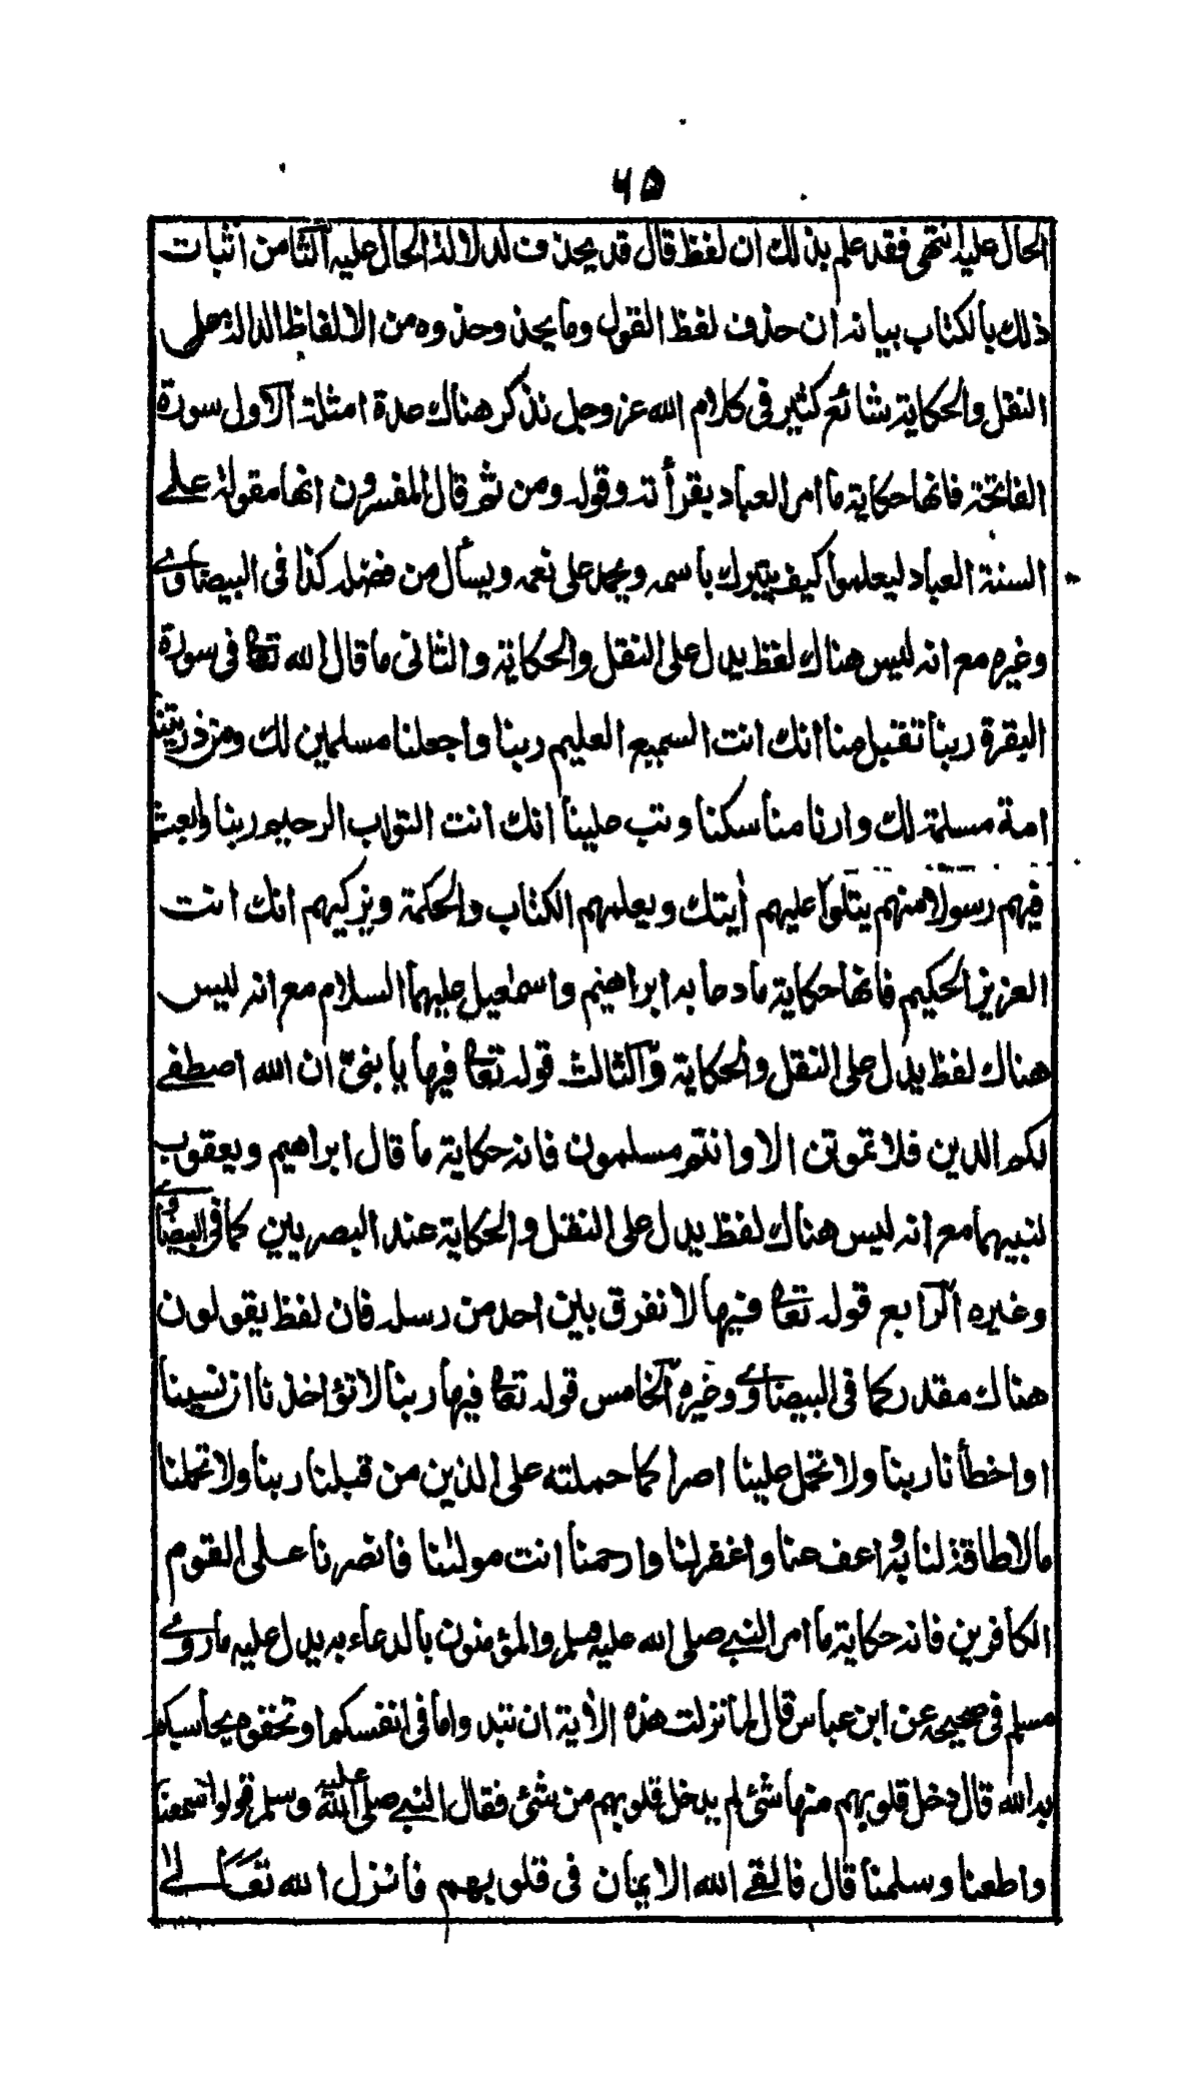 ۶۵
الحال عليه انتهى فقد علم بذلك ان لفظ قال قد يحذف لدلالة الحال عليه الثامن اثبات
ذلك بالكتاب بيانه ان حذف لفظ القول وما يحذو حذوه من الالفاظ الدالة على
النقل والحكاية شائع كثير فى كلام الله عز وجل نذكر هناك عدة امثلة الاول سورة
الفاتحة فانها حكاية ما امر العباد بقرأته وقوله ومن ثم قال المفسرون انها مقولة على
السنة العباد ليعلموا كيف يتبرك باسمه ويحمد على نعمه ويسأل من فضله كذا فى البيضاوى
وغيره مع انه ليس هناك لفظ يدل على النقل والحكاية والثانى ما قال الله تعالى فى سورة
البقرة ربنا تقبل منا انك انت السميع العليم ربنا واجعلنا مسلمين لك ومن ذريتنا
امة مسلمة لك وارنا مناسكنا وتب علينا انك انت التواب الرحيم ربنا وابعث
فيهم رسولا منهم يتلوا عليهم أيتك ويعلمهم الكتاب والحكمة ويزكيهم انك انت
العزيز الحكيم فانها حكاية ما دعا به ابراهيم واسمعيل عليهما السلام مع انه ليس
هناك لفظ يدل على النقل والحكاية والثالث قوله تعالى فيها يا بنىّ ان الله اصطفى
لكم الدين فلا تموتن الا وانتم مسلمون فانه حكاية ما قال ابراهيم ويعقوب
لنبيهما مع انه ليس هناك لفظ يدل على النقل والحكاية عند البصريين كما فى البيضاوى
وغيره الرابع قوله تعالى فيها لا نفرق بين احد من رسله فان لفظ يقولون
هناك مقدر كما فى البيضاوى وغيره الخامس قوله تعالى فيها ربنا لا تؤاخذنا ان نسينا
او اخطأنا ربنا ولا تحمل علينا اصرا كما حملته على الذين من قبلنا ربنا ولا تحملنا
ما لا طاقة لنا به واعف عنا واغفر لنا وارحمنا انت مولٰنا فانصرنا على القوم
الكافرين فانه حكاية ما امر النبى صلى الله عليه وسلم والمؤمنون بالدعاء به يدل عليه ما روى
مسلم فى صحيحه عن ابن عباس قال لما نزلت هذه الأية ان تبدوا ما فى انفسكم او تخفوه يحاسبكم
به الله قال دخل قلوبهم منها شئ لم يدخل قلوبهم من شئ فقال النبى صلى الله عليه وسلم قولوا سمعنا
واطعنا وسلمنا قال فالقى الله الايمان فى قلوبهم فانزل الله تعالى